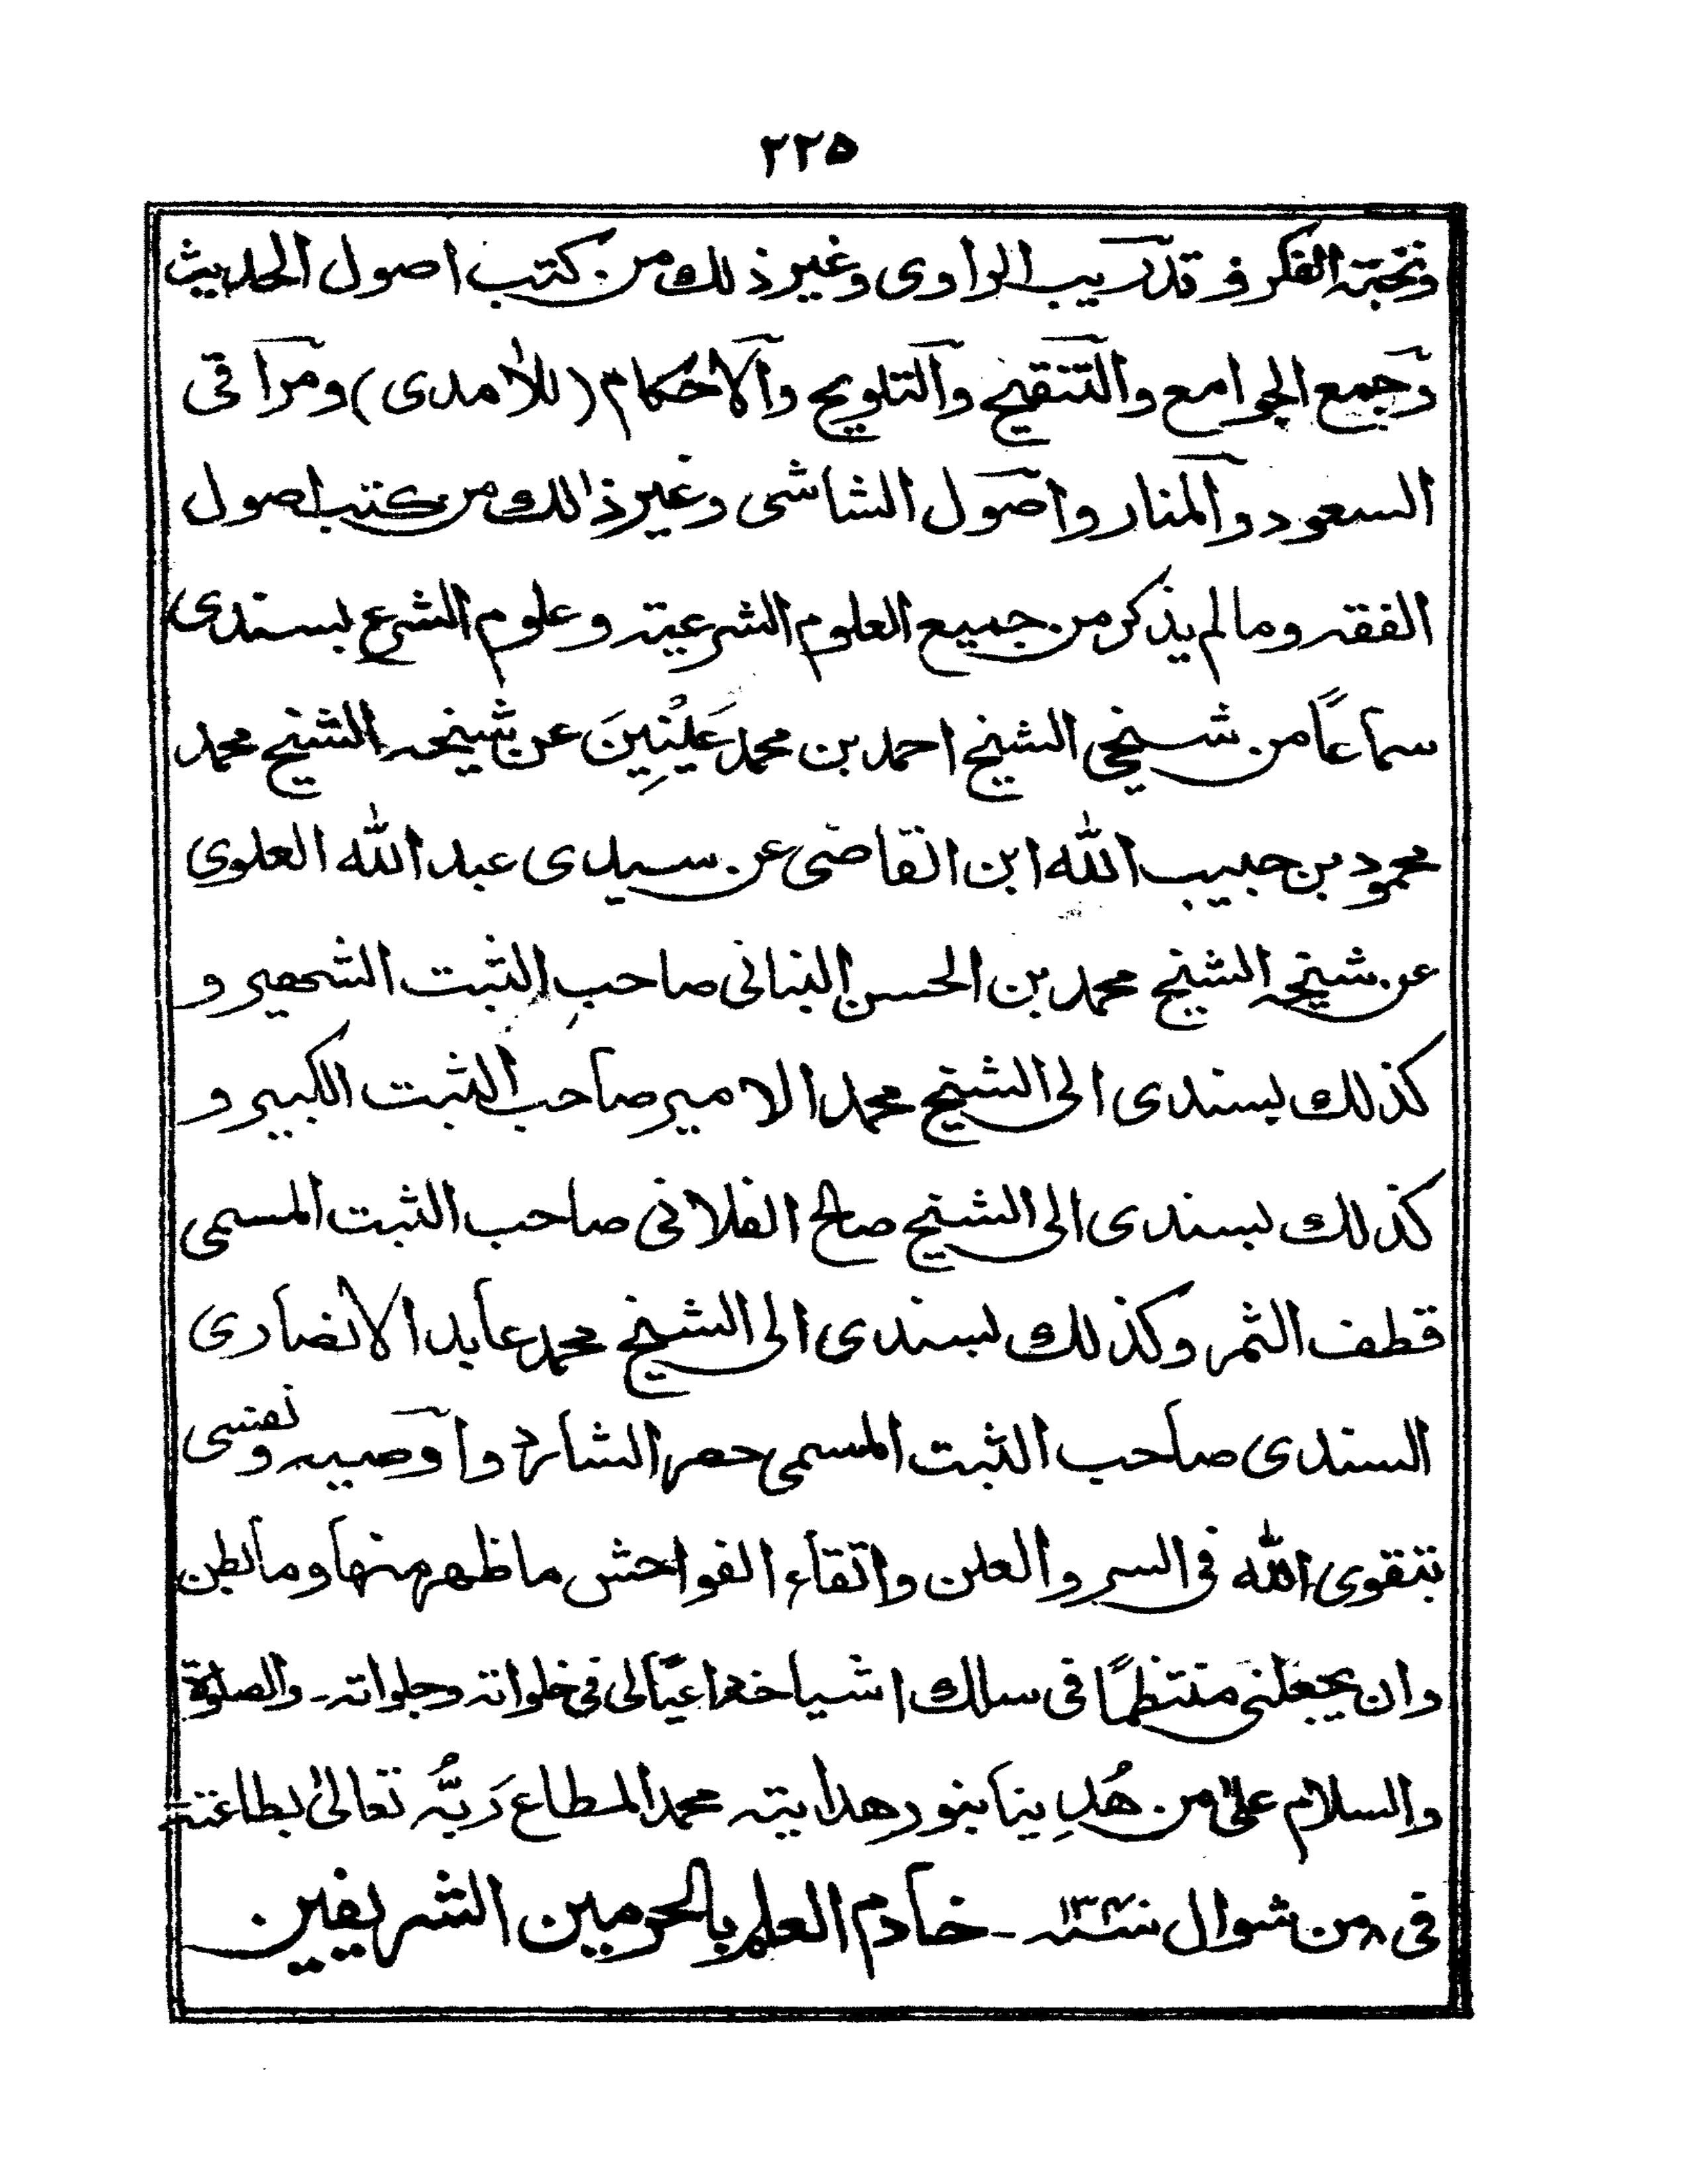 ٢٢٥
ونخبة الفكر و تدريب الراوى وغير ذلك من كتب اصول الحديث
وجمع الجوامع والتنقيح والتلويح والاحكام (للاٰمدى) ومراقى
السعود والمنار واصول الشاشى وغير ذالك من كتب اصول
الفقه ومالم يذكر من جميع العلوم الشرعية وعلوم الشرع بسندى
سماعًا من شيخي الشيخ احمد بن محمد عَيْنِينَ عن شيخه الشيخ محمد
محمود بن حبيب الله ابن القاضى عن سيدى عبد الله العلوى
عن شيخه الشيخ محمد بن الحسن البنانى صاحب الثبت الشهير و
كذلك بسندى الى الشيخ محمد الامير صاحب الثبت الكبير و
كذلك بسندى الى الشيخ صالح الفلانى صاحب الثبت المسمى
قطف الثمر وكذلك بسندى الى الشيخ محمد عابد الانصارى
السندى صاحب الثبت المسمى حصر الشارد واوصيه ونفسى
بتقوى الله فى السر والعلن واتقاء الفواحش ماظهر منها ومابطن
وان يجعلنى منتظمًا فى سلك اشياخه داعيًا لى فى خلواته وجلواته ـ والصلوٰة
والسلام علىٰ من هُدِينا بنور هدايته محمد المطاع رَبُّه تعالىٰ بطاعته
فى ٨ من شوال سنه ـ خادم العلم بالحرمين الشريفين